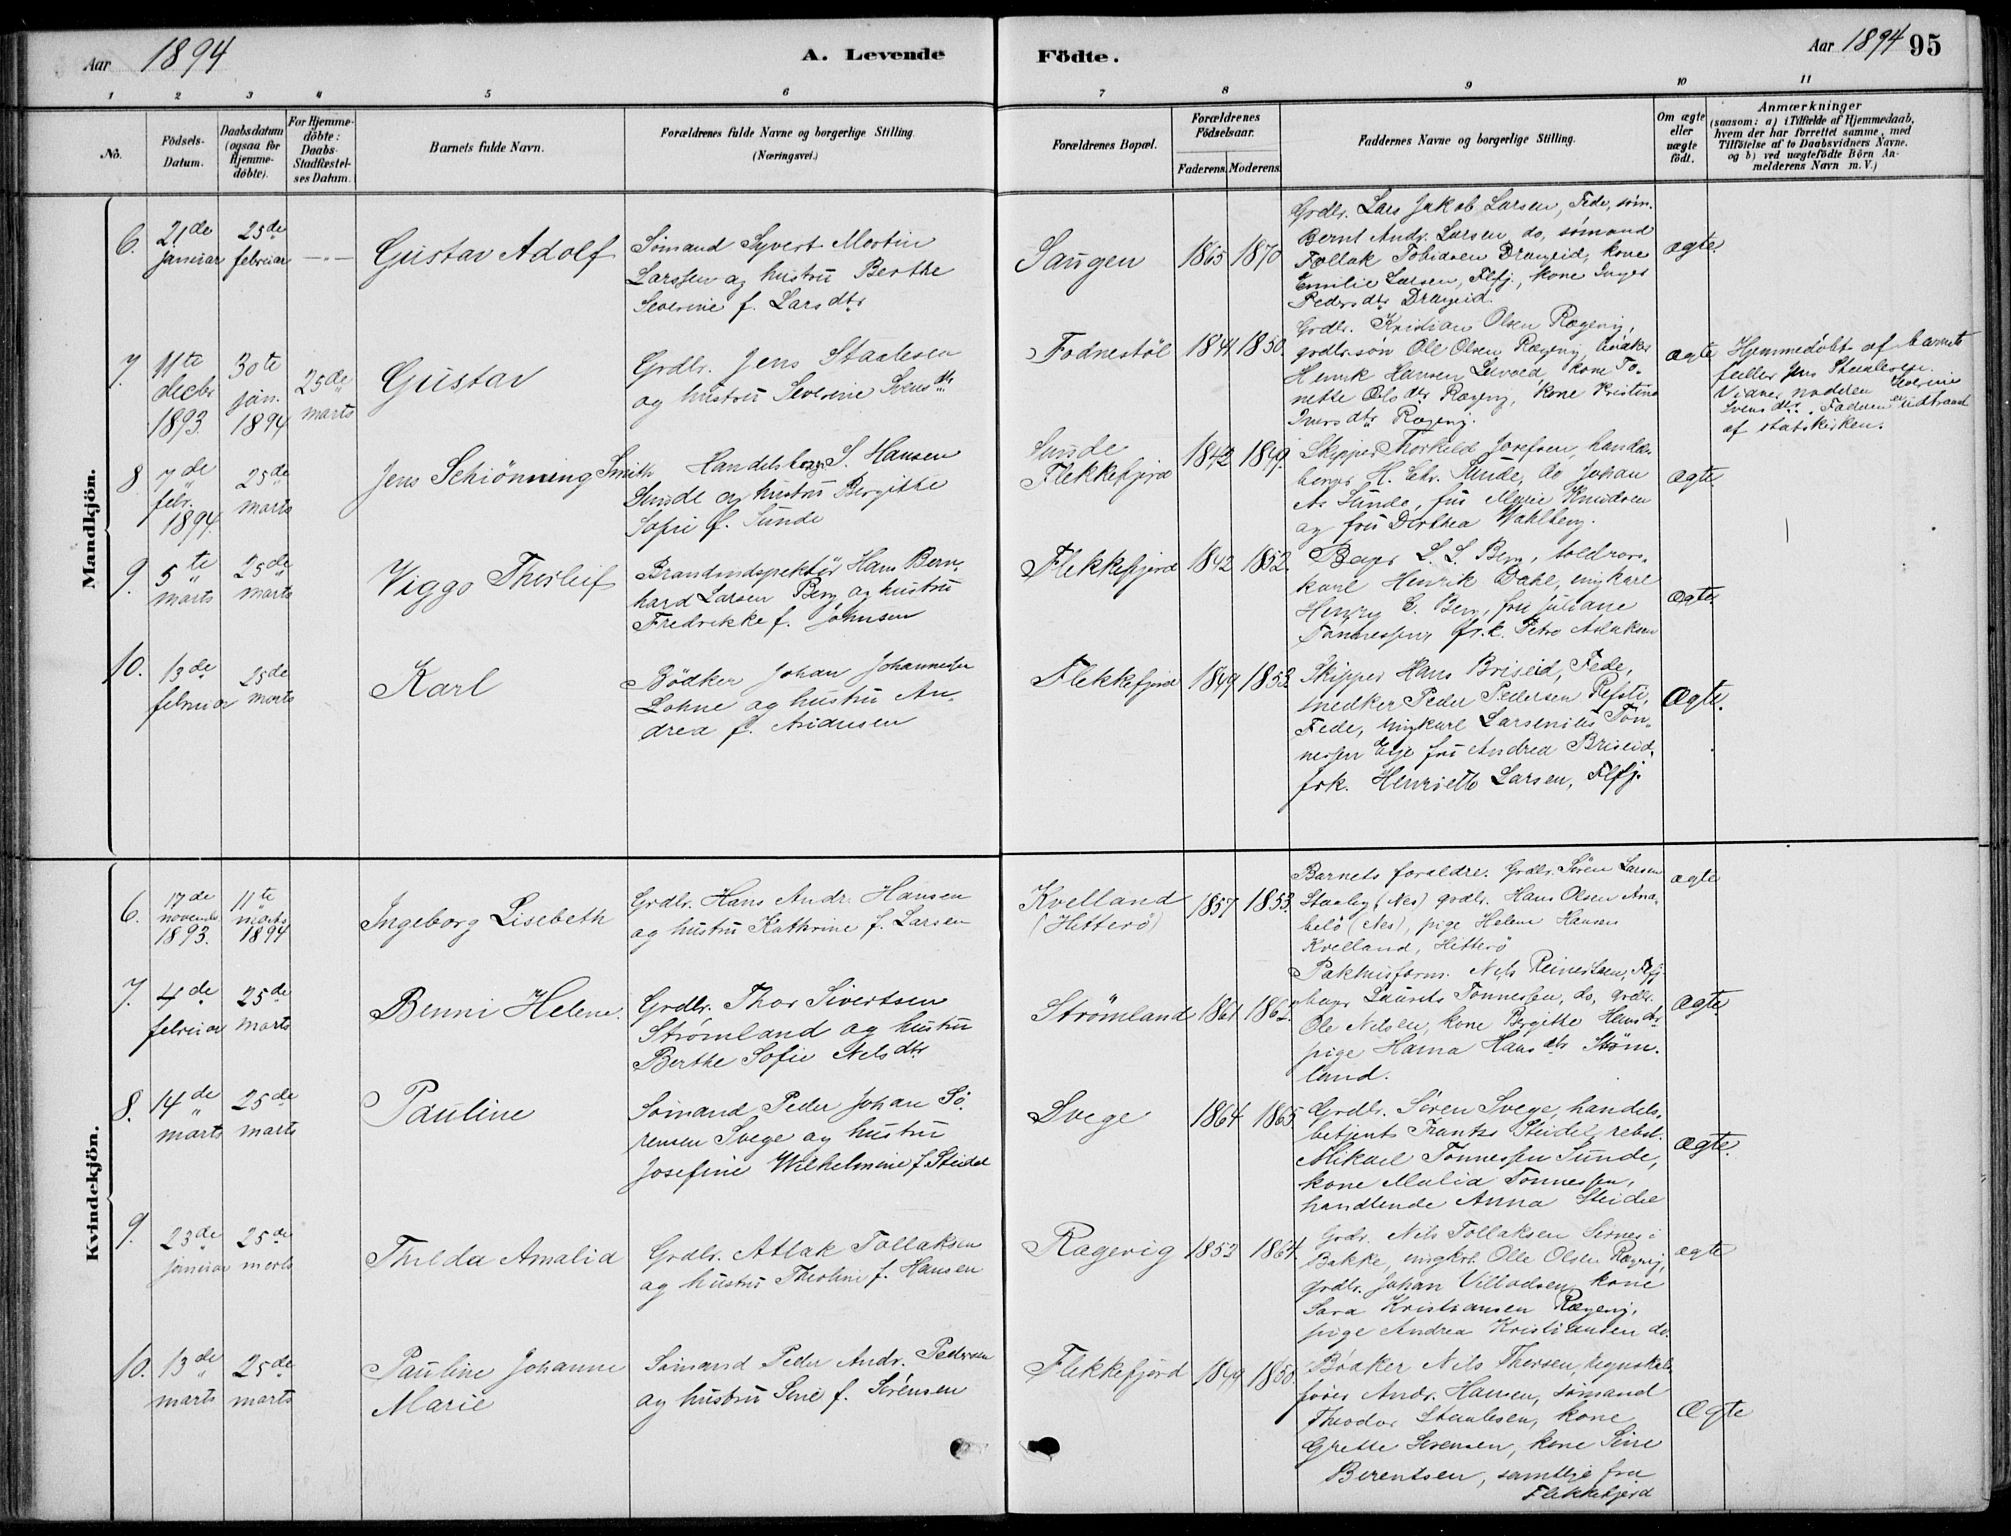 Aar 1894
A. Levende
Födte.
Aar 1894 95
1 2 3 4 5 6 7 8 9 10 11
No.
Födsels-Datum.
Daabsdatum (ogsaa for Hjemme-döbte).
For Hjemme-döbte: Daabs-Stadfæstel-ses Datum.
Barnets fulde Navn.
Forældrenes fulde Navne og borgerlige Stilling. (Næringsvei.)
Forældrenes Bopæl.
Forældrenes Födselsaar.
Faderens. Moderens.
Faddernes Navne og borgerlige Stilling.
Om ægte eller uægte födt.
Anmærkninger
(saasom: a) i Tilfælde af Hjemmedaab,
hvem der har forrettet samme, med
Tilföielse af to Daabsvidners Navne.
og b) ved uægtefödte Börn An-
melderens Navn m. V.)
Mandkjön.
6. 21de januar
25de februar
Gustav Adolf
Sömand Syvert Martin
Larssen og hustru Berthe
Severine f. Larsdtr
Saugen 1865 1870
Grdbr. Lars Jakob Larsen, Fede, söm.
Bernt Andr. Larsen, do, sömand
Tollak Tobiasen Drangeid, kone
Emilie Larsen, Flfj., kone Inger
Pedersdtr Drangeid.
ægte.
7. 11te decbr 1893.
30te jan. 1894
25de marts
Gustav
Grdbr. Jens Staalesen
og hustru Severine Svensdtr
Fodnestöl 1841 1850.
Grdbr. Kristian Olsen Rægevig,
grdbr.søn Ole Olsen Rægevig,
Henrik Hansen kone To-
nette Olsdtr Rægevig, kone Kristine
Iversdtr Rægevig.
ægte
Hjemmedöbt af barnets
fader Jens Staalesen.
Vidne, moderen Severine
Svensdtr. Faderen er udtraadt
af statskirken.
8 7de febr. 1894.
25de marts
Jens Schiönning Smith
Handelsborger S. Hansen
Sunde og hustru Bergitte
Sofie f. Sunde
Sunde
Flekkefjord 1842 1849.
Skipper Thorkild Josefsen, handels-
borger H. Chr. Sunde, do Johan
A. Sunde, fru Marie Knudsen
og fru Dorthea Wahlberg.
ægte
9. 5te marts
25de marts
Viggo Thorleif
Brandindspektör Hans Bern-
hard Larsen Berg og hustru
Fredrikke f. Johnsen
Flekkefjord 1842 1852.
Bager L. L. Berg, toldrors-
karl Henrik Dahl, ungkarl
Henry E. Berg, fru Juliane
Tönnessen, frk. Petra Aslaksen
ægte.
10. 13de februar
25de marts
Karl
Bödker Johan Johannesen
Lohne og hustru An-
drea f. Andresen
Flekkefjord 1849 1853
Skipper Hans Briseid, Fede,
snedker Peder Pedersen Refsti,
Fede, ungkarl Larsenius Tön-
nessen Eeje fru Andrea Briseid,
frk. Henriette Larsen, Flfj.
Ægte.
Kvindekjön.
6. 17de novembr 1893.
11te marts 1894
Ingeborg Lisebeth
Grdbr. Hans Andr. Hansen
og hustru Kathrine f. Larsen
Kvelland
(Hitterö) 1857 1853.
Barnets foraldre. Grdbr. Sören Larsen
Staaley (Nes) grdbr. Hans Olsen Ana-
belö (Nes), pige Helene Hansen
Kvelland, Hitterö
ægte
7. 4de februar
25de marts
Benni Helene.
Grdbr. Thor Sivertsen
Strömland og hustru
Berthe Sofie Nelsdtr
Strömland 1861 1862.
Pakhusform. Nels Reinertsen, Flfj.
Laurits Tönnessen, do, grdbr.
Ole Nelsen, kone Bergitte Hansdtr
pige Hanna Hansdtr Ström-
land.
ægte.
8. 14de marts
25de marts
Pauline
Sömand Peder Johan Sö-
rensen Svege og hustru
Josefine Wilhelmine f. Steidel
Svege 1864 1865
Grdbr. Sören Svege, handels-
betjent Frants Steidel, rebsl.
Mikael Tönnessen Sunde,
kone Malia Tönnessen,
handlende Anna Steidel
ægte.
9. 23de januar
25de marts
Thilda Amalia
Grdbr. Atlak Tollaksen
og hustru Theoline f. Hansen
Rægevig 1853 1864.
Grdbr. Nils Tollaksen Sirnes i
Bakke, ungkrl. Olle Olsen Rægevig,
grdbr. Johan Villadsen, kone
Sara Kristiansen Rægevig,
pige Andrea Kristiansen do.
ægte
10. 13de marts
25de marts
Pauline Johanne
Marie
Sömand Peder Andr. Pedersen
og hustru Sine f. Sörensen
Flekkefjord 1849 1850
Bödker Nils Thorsen, regnskabs-
förer Andr. Hansen, sömand
Theodor Staalesen, kone
Grethe Sörensen, kone Sine
Berentsen, samtlige fra
Flekkefjord
Ægte